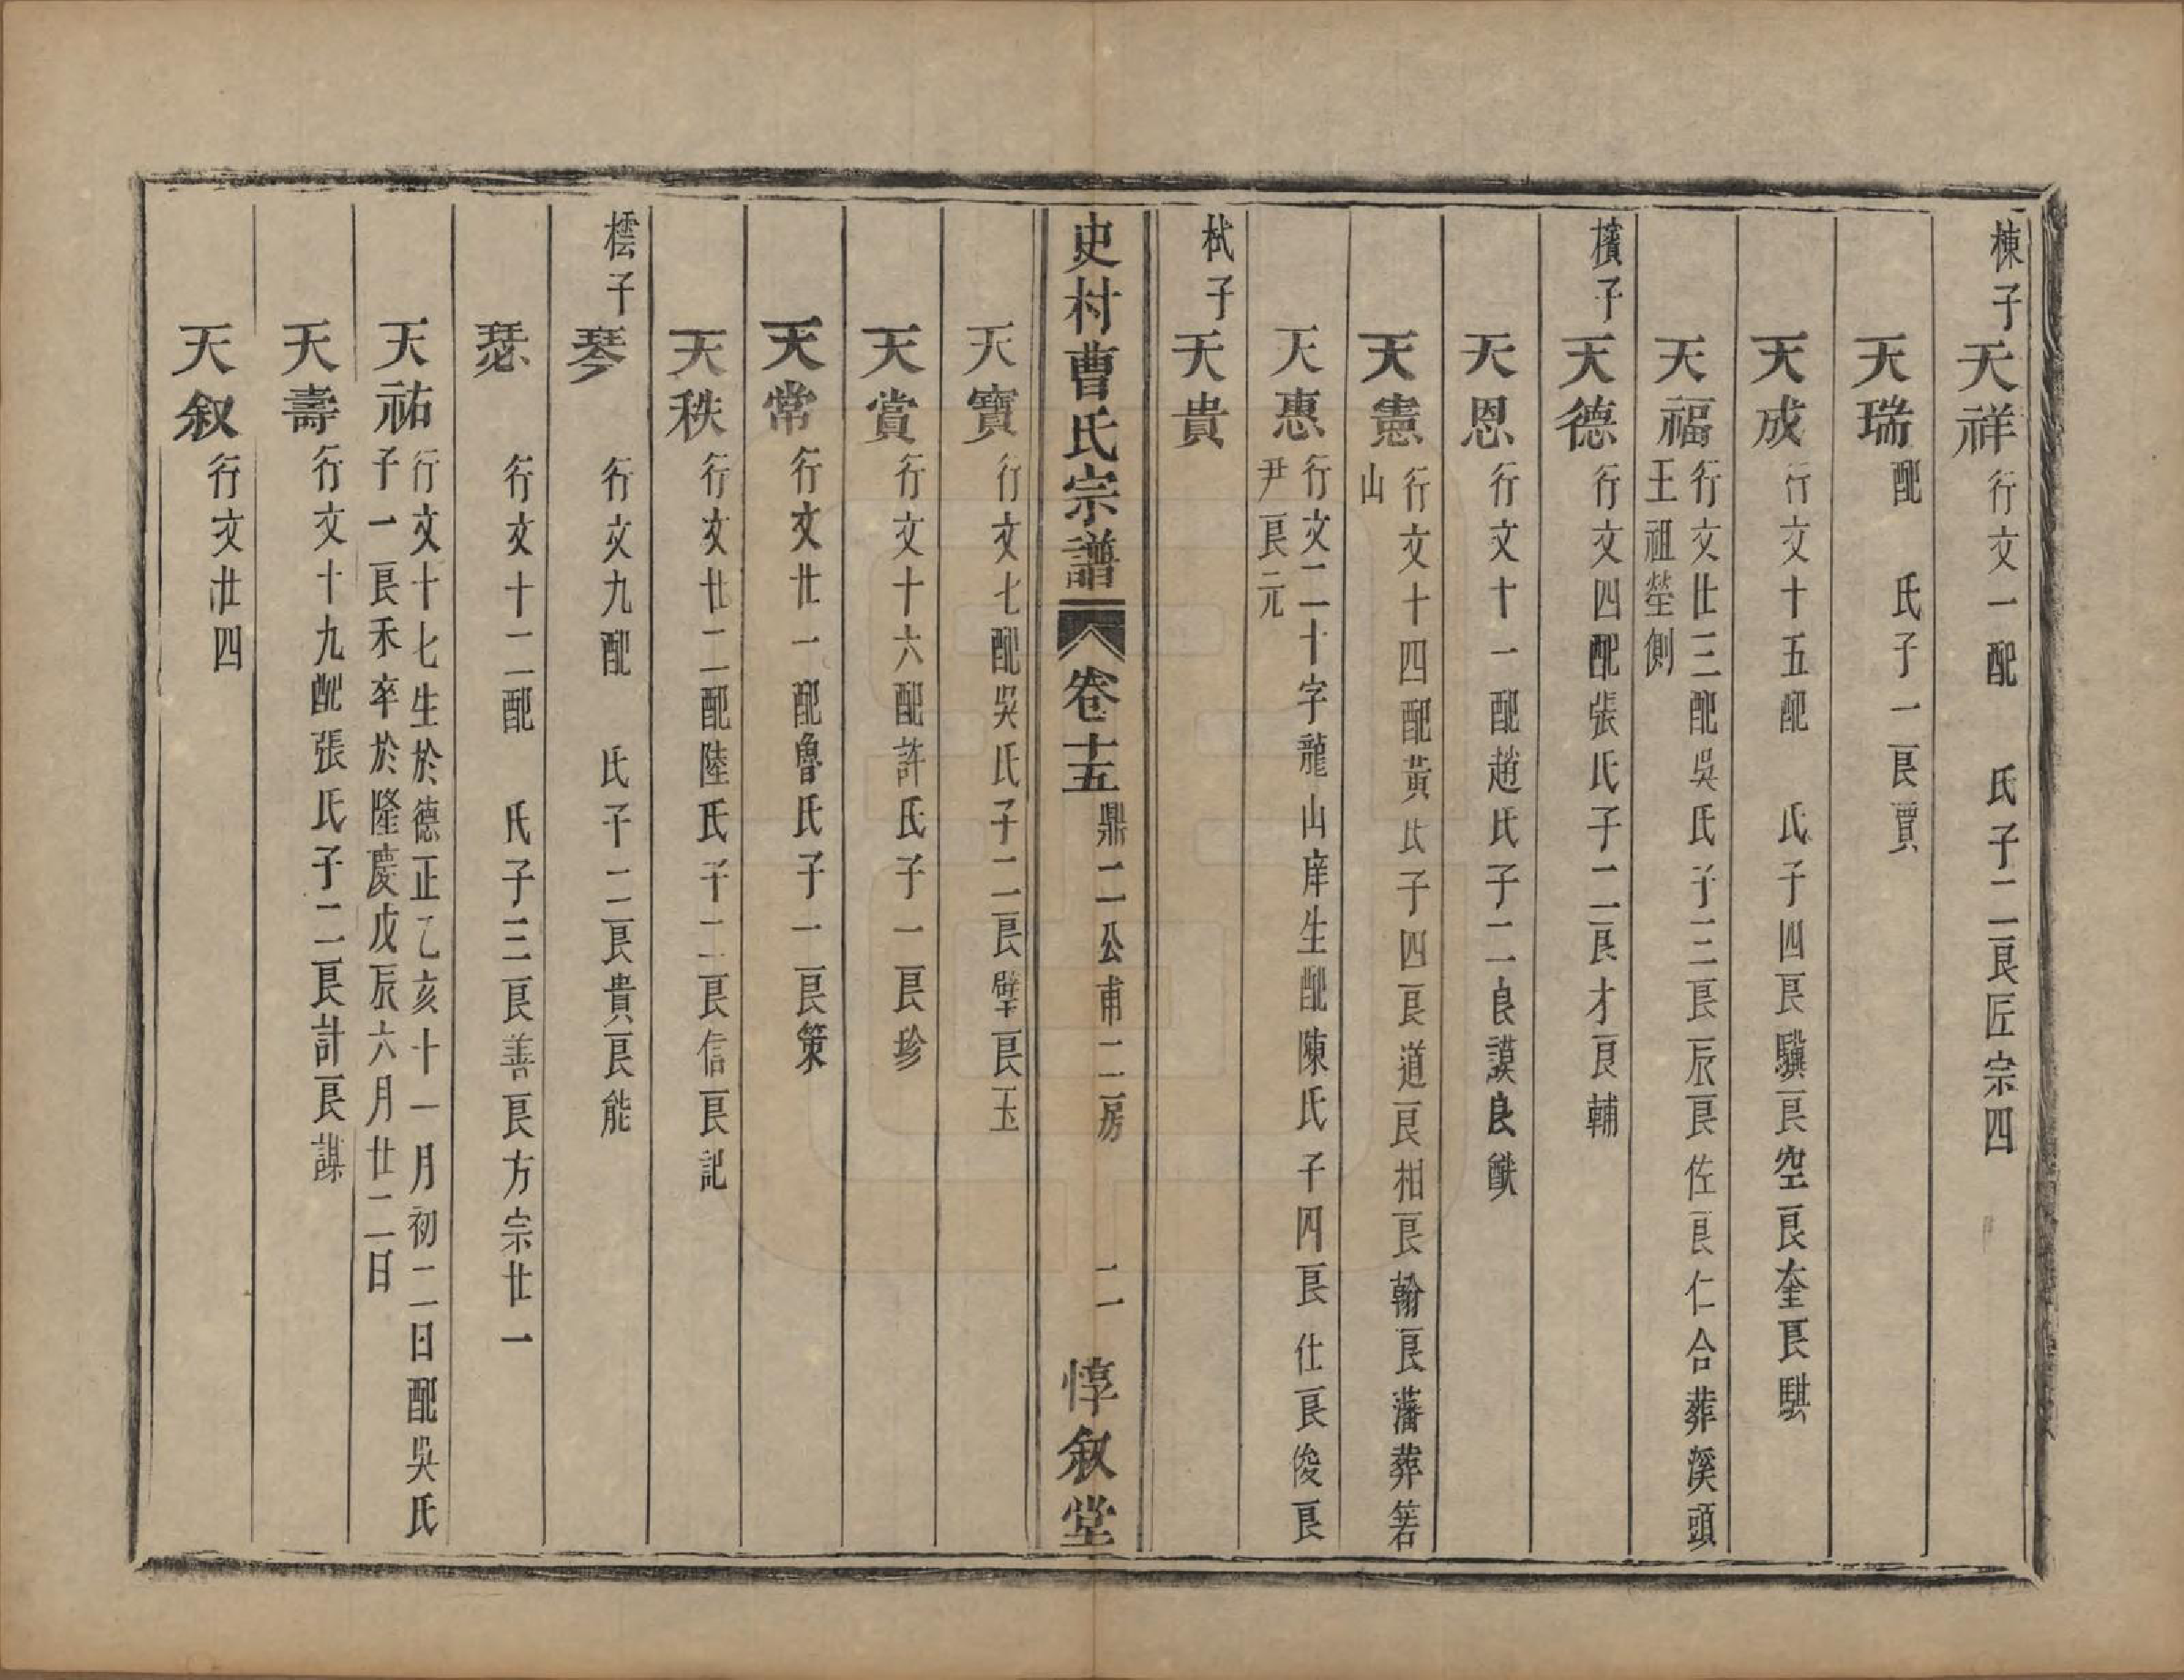 棟子
天祥行文一配　氏子二良匠宗四
天瑞配　氏子一良賈
天成行文十五配　氏子四良驥良空良奎良騏
天福行文廿三配吳氏子三良辰良佐良仁合葬溪頭
王祖塋側
檟子
天德行文四配張氏子二良才良輔
天恩行文十一配趙氏子二良謨良猷
天憲行文十四配黃氏子四良道良相良翰良藩葬箬
山
天惠行文二十字龍山庠生配陳氏子四良仕良俊良
尹良元
栻子
天貴
史村曹氏宗譜 卷十五 鼎二公甫二房 二 惇叙堂
天寶行文七配吳氏子二良璧良玉
天賞行文十六配許氏子一良珍
天常行文廿一配魯氏子一良策
天秩行文廿二配陸氏子二良信良記
橒子
琴　行文九配　氏子二良貴良能
瑟　行文十二配　氏子三良善良方宗廿一
天祐行文十七生於德正乙亥十一月初二日配吳氏
子一良禾卒於隆慶戊辰六月廿二日
天壽行文十九配張氏子二良計良謀
天叙行文廿四